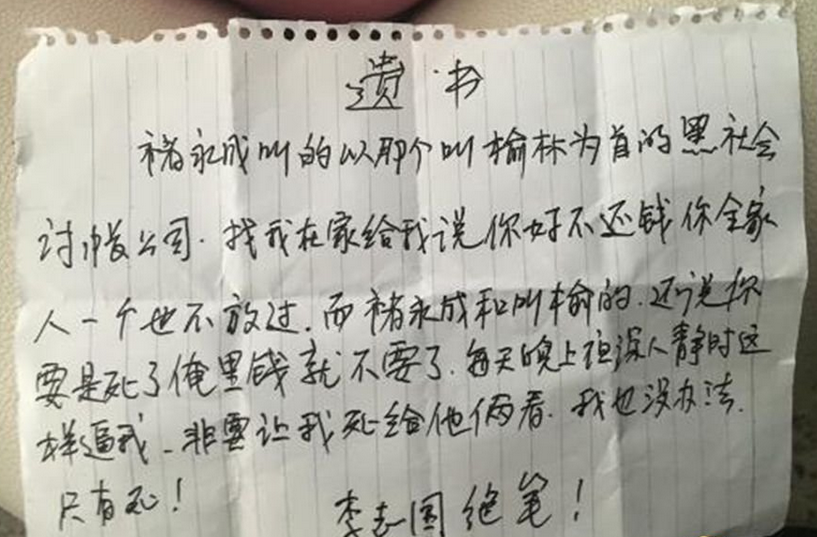 遗书
褚永成叫的以那个叫榆林为首的黑社会
讨帐公司.找我在家给我说你好不还钱你全家
人一个也不放过.而褚永成和叫榆的.还说你
要是死了俺里钱就不要了.每天晚上夜深人静时这
样逼我_非要让我死给他俩看.我也没办法.
只有死!
李志国绝笔!